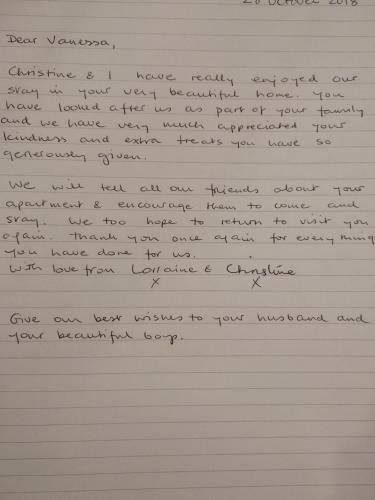 20 October 2018
Dear Vanessa,
Christine & I have really enjoyed our
stay in your very beautiful home. You
have looked after us as part of your family
and we have very much appreciated your
kindness and extra treats you have so
generously given.
We will tell all our friends about your
apartment & encourage them to come and
stay. We too hope to return to visit you
again. Thank you once again for everything
you have done for us.
With love from Lorraine & Christine
x x
Give our best wishes to your husband and
your beautiful boys.